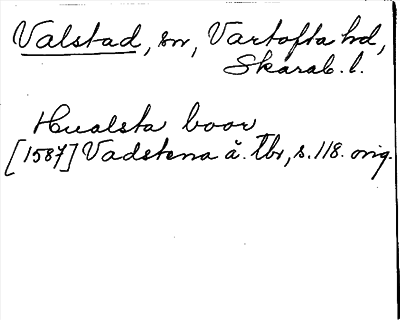 Valstad, sn, Vartofta hd,
Skarab. l.
Hualsta boor
[1587] Vadstena ä. Tbr, s. 118. orig.